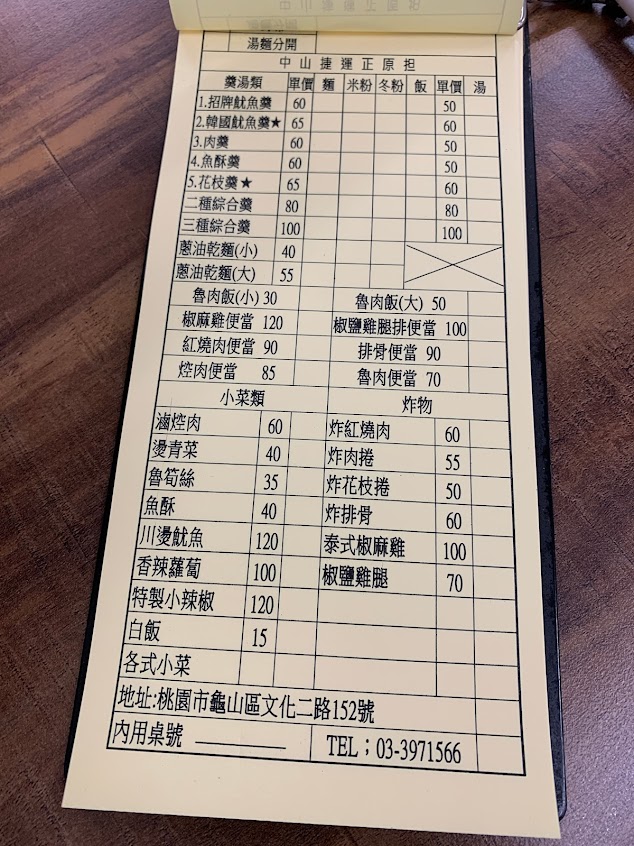 湯麵分開
中山捷運正原担
羹湯類 單價 麵 米粉 冬粉 飯 單價 湯
1.招牌魷魚羹 60 50
2.韓國魷魚羹★ 65 60
3.肉羹 60 50
4.魚酥羹 60 50
5.花枝羹★ 65 60
二種綜合羹 80 80
三種綜合羹 100 100
蔥油乾麵(小) 40
蔥油乾麵(大) 55
魯肉飯(小) 30 魯肉飯(大) 50
椒麻雞便當 120 椒鹽雞腿排便當 100
紅燒肉便當 90 排骨便當 90
焢肉便當 85 魯肉便當 70
小菜類 炸物
滷焢肉 60 炸紅燒肉 60
燙青菜 40 炸肉捲 55
魯筍絲 35 炸花枝捲 50
魚酥 40 炸排骨 60
川燙魷魚 120 泰式椒麻雞 100
香辣蘿蔔 100 椒鹽雞腿 70
特製小辣椒 120
白飯 15
各式小菜
地址:桃園市龜山區文化二路152號
內用桌號 TEL；03-3971566